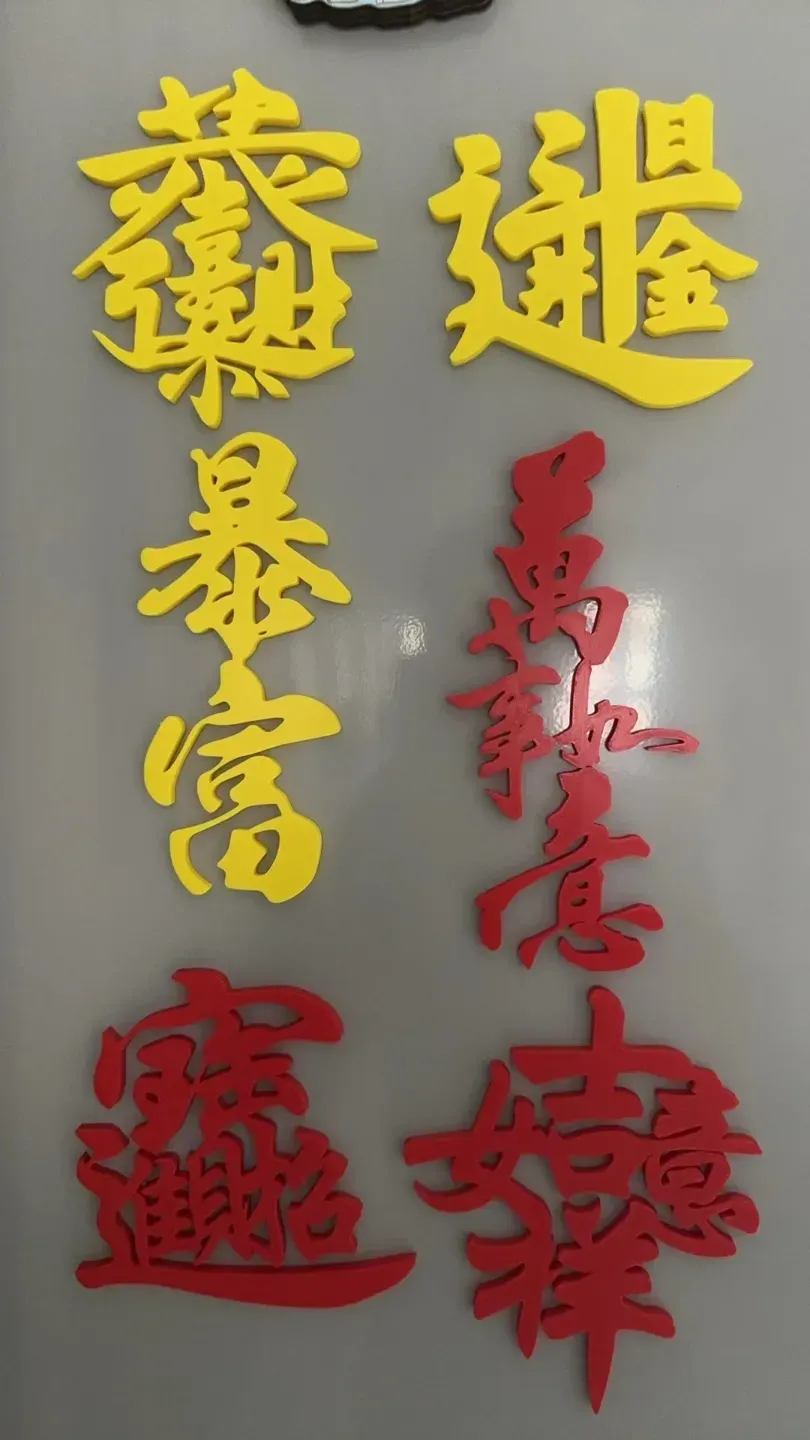 恭喜發財
日進斗金
暴富
萬事如意
招財進寶
吉祥如意